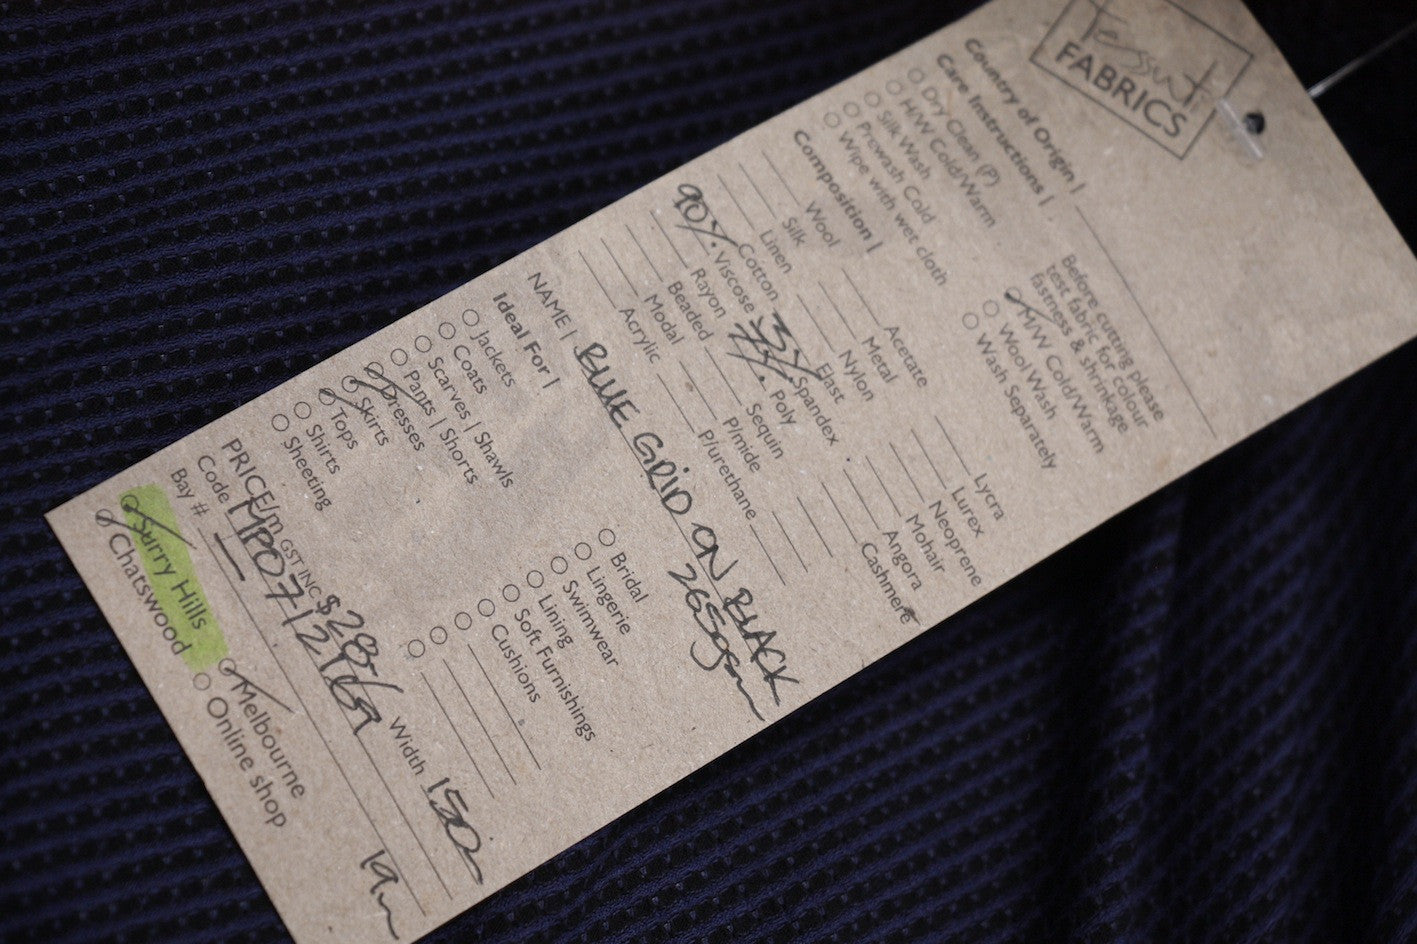 Tessuti
FABRICS
Country of Origin |
Care Instructions |
Dry Clean (P)
H/W Cold/Warm
Silk Wash
Prewash Cold
Wipe with wet cloth
Before cutting please
test fabric for colour
fastness & shrinkage
M/W Cold/Warm
Wool Wash
Wash Separately
Composition |
Wool
Silk
Linen
Cotton
90% Viscose
Rayon
Beaded
Modal
Acrylic
Acetate
Metal
Nylon
Elast
3% Spandex
7% Poly
Sequin
P/mide
P/urethane
Lycra
Lurex
Neoprene
Mohair
Angora
Cashmere
NAME | BLUE GRID ON BLACK
265gsm
Ideal For |
Jackets
Coats
Scarves | Shawls
Pants | Shorts
Dresses
Skirts
Tops
Shirts
Sheeting
Bridal
Lingerie
Swimwear
Lining
Soft Furnishings
Cushions
PRICE/m GST INC $28 Width 150
Code
Bay #
Surry Hills
Chatswood
Melbourne
Online shop